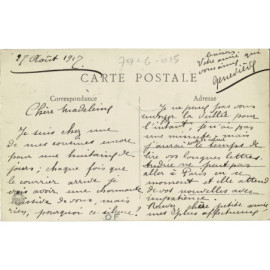 27 Août 1917
79-6-015
amie qui
Geneviève
CARTE POSTALE
Correspondance
Adresse
Chère Madeleine
Je suis chez une
de mes cousines encore
pour une huitaine de
jours; chaque fois que
le courrier arrive je
vais avoir une charmante
de vous, mais
rien, pourquoi ce silence.
Je ne peux pas vous
envoyer la
l'instant, je n'ai pas
une minute, mais
j'aurai le temps de
lire vos longues lettres.
Andrée ne peut pas
aller à Paris en ce
moment et elle attend
de vos nouvelles avec
impatience.
petite amie
mes affectueux